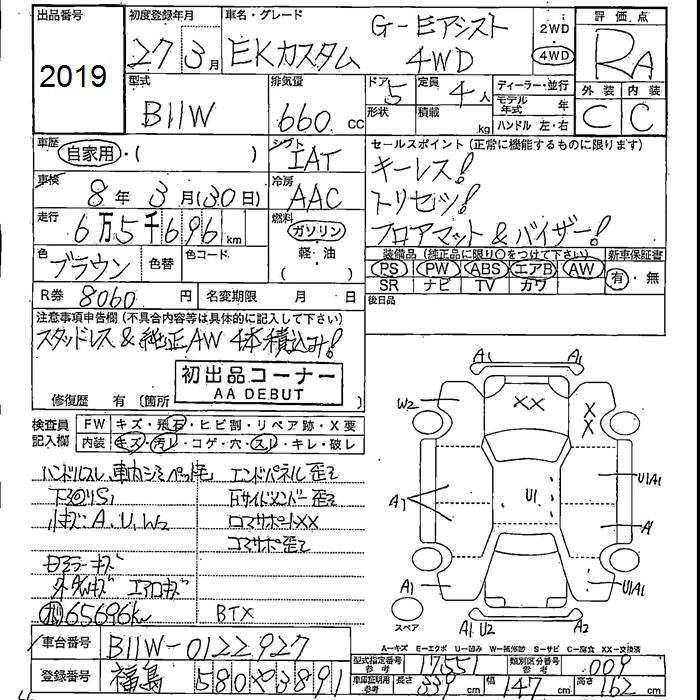 出品番号 初度登録年月 車名・グレード G-Eアシスト 2WD 評価点
2019 27年3月 EKカスタム 4WD 4WD RA
型式 排気量 ドア 定員 ディーラー・並行 外装 内装
B11W 660cc 5 4人 モデル年式 年 C C
形状 積載 kg ハンドル 左・右
車歴 シフト セールスポイント(正常に機能するものに限ります)
自家用・( ) IAT キーレス!
車検 冷房 トリセツ!
8年3月(30日) AAC フロアマット&バイザー!
走行 燃料
6万5千696km ガソリン 装備品(純正品に限り○をつけて下さい) 新車保証書
色 色替 色コード 軽・油 PS PW ABS エアB AW 有・無
ブラウン ( ) SR ナビ TV カワ
R券 8060円 名変期限 月 日 後日品
注意事項申告欄(不具合内容等は具体的に記入して下さい)
スタッドレス&純正AW 4本積込み!
初出品コーナー
AA DEBUT
修復歴 有(箇所
検査員 FW キズ・飛石・ヒビ割・リペア跡・X要
記入欄 内装 キズ・汚レ・コゲ・穴・スレ・キレ・破レ
ハンドルスレ 車内シミ ペット毛 エンドパネル歪
下廻りS1
A.U.W2 XX
キズ エアロキズ
65696km BTX
車台番号 B11W-0122927
登録番号 福島 580 や 3891
A1 A1
W2 XX X X
A1 U1 U1A1
A1
A1 U1A1
スペア A1 U2 A2
A-キズ E-エクボ U-凹み W-補修跡 S-サビ C-腐食 XX-交換済
型式指定番号 参考 17551 類別区分番号 参考 009
車庫証明用 参考 長さ 339cm 幅 147cm 高さ 162cm